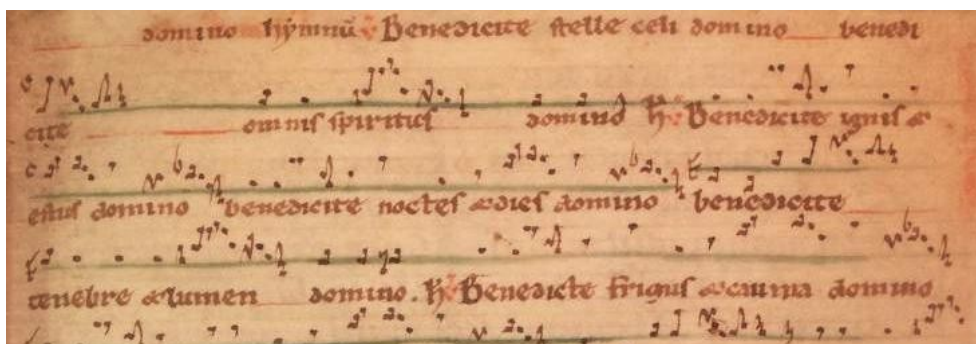 domino hymnū ℣ Benedicite stelle celi domino benedi
cite omnis spiritus domino ℟ Benedicite ignis &
estus domino benedicite noctes & dies domino benedicite
tenebre & lumen domino. ℟ Benedicite frigus & cauma domino